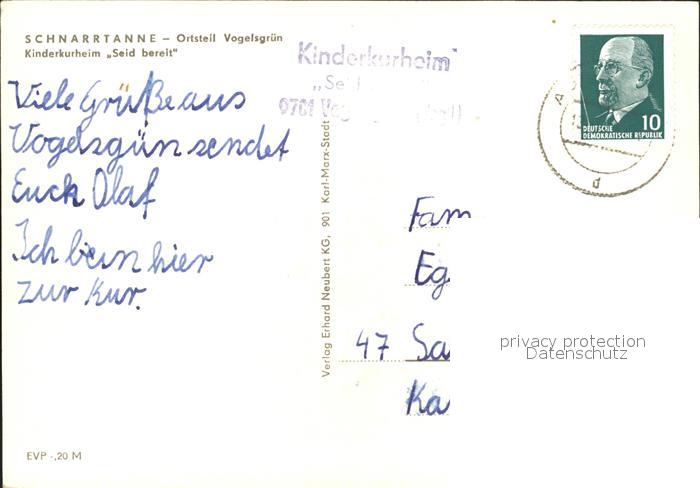 SCHNARRTANNE – Ortsteil Vogelsgrün
Kinderkurheim „Seid bereit"
Viele Grüße aus
Vogelsgün sendet
Euch Olaf
Ich bein hier
zur Kur.
EVP -,20 M
Verlag Erhard Neubert KG, 901 Karl-Marx-Stadt
Kinderkurheim
9701
10
DEUTSCHE
DEMOKRATISCHE REPUBLIK
d
Fam
Eg
47 Sa
Ka
privacy protection
Datenschutz